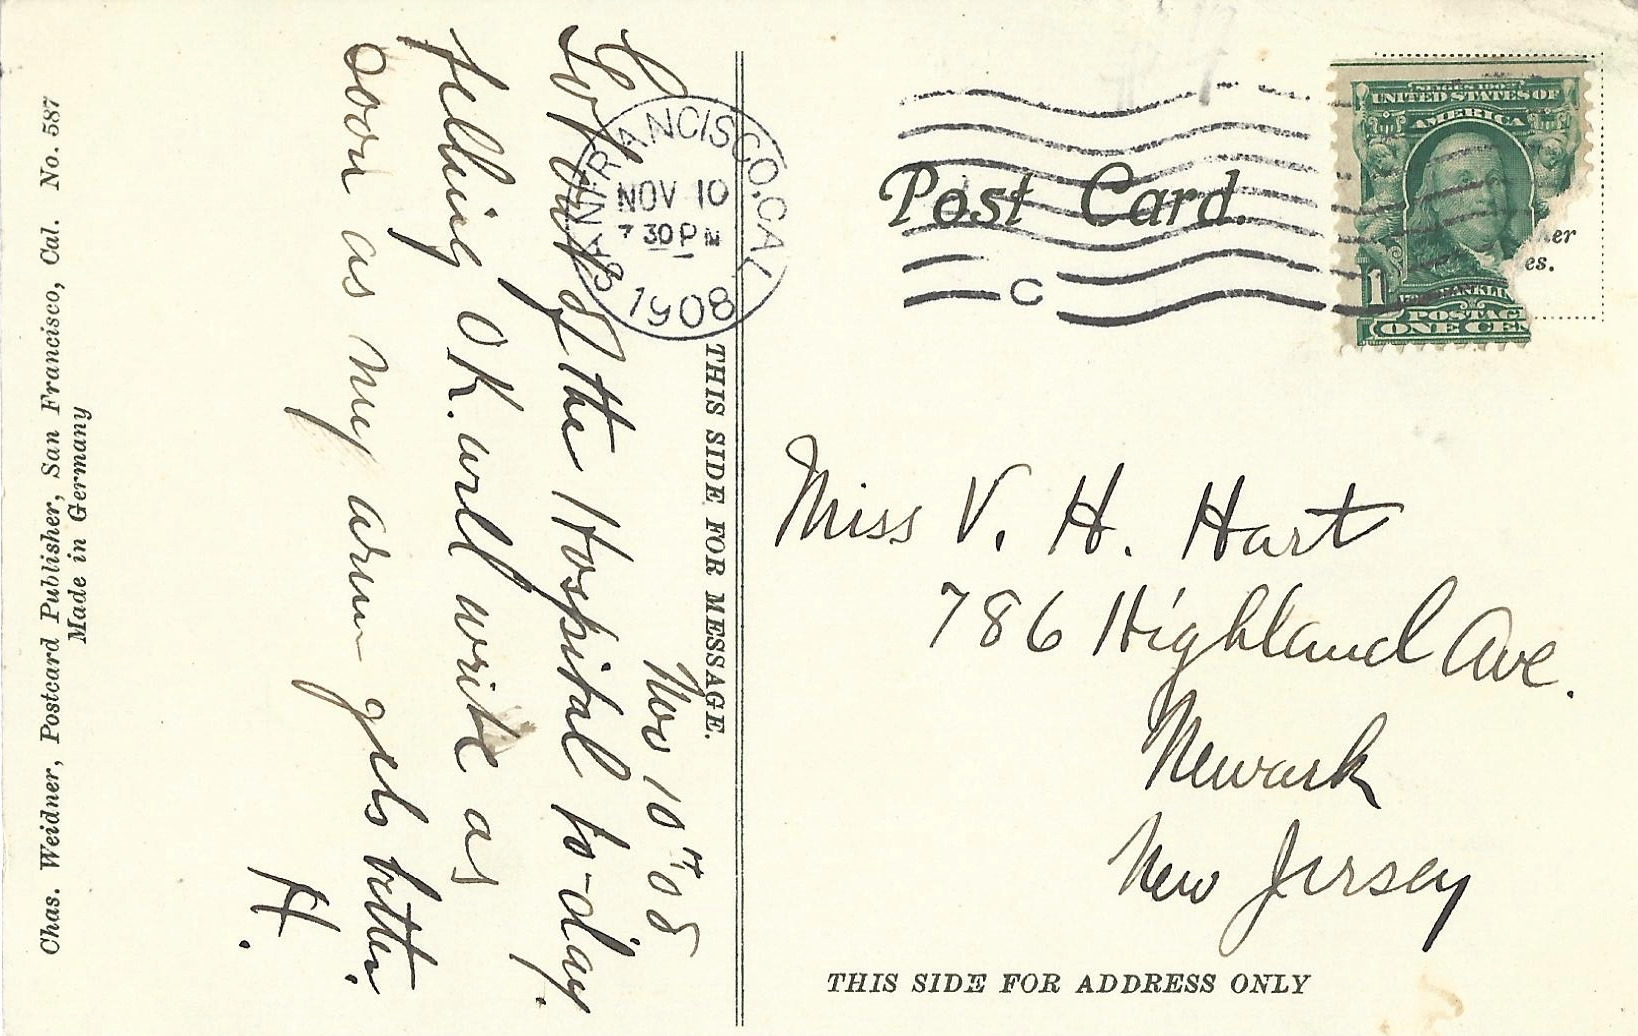 Chas. Weidner, Postcard Publisher, San Francisco, Cal. No. 587
Made in Germany
THIS SIDE FOR MESSAGE.
Nov 10th 08
Got out of the Hospital to-day.
felling OK. will write as
soon as my arm gets better.
H.
SAN FRANCISCO, CAL
NOV 10
7 30 PM
1908
C
Post Card.
SERIES 1902
UNITED STATES OF
AMERICA
1
FRANKLIN
POSTAGE
ONE CEN
es.
Miss V. H. Hart
786 Highland Ave.
Newark
New Jersey
THIS SIDE FOR ADDRESS ONLY